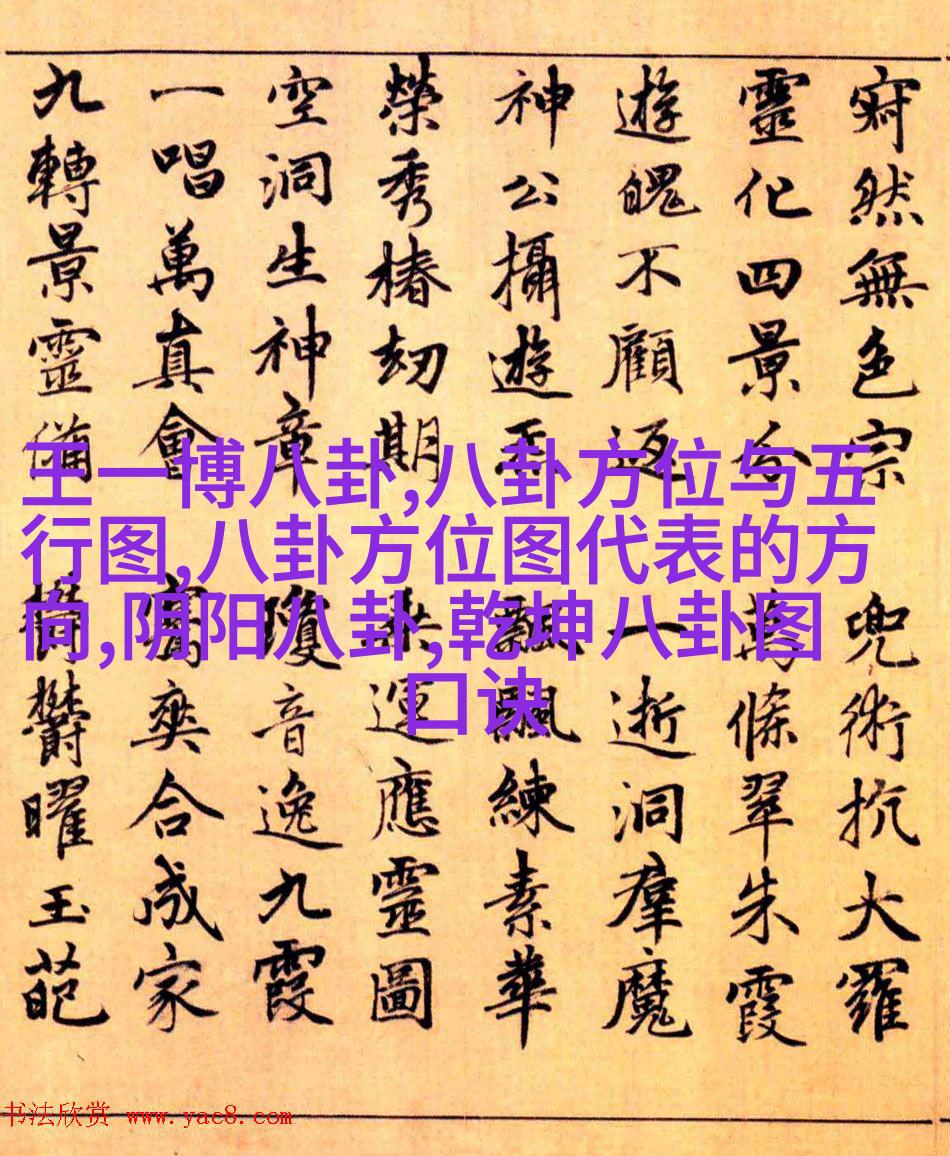 寂然無色宗 兜術抗大羅
靈化四景分 萬條翠朱霞
遊魄不顧返 一逝洞羣魔
神公攝遊 飄飄練素華
榮秀椿劫期 運應靈圖
空洞生神章 瓊音逸九霞
一唱萬真會 爽合成家
九轉景靈備 鬱鬱曜玉葩
王一博八卦,八卦方位与五
行图,八卦方位图代表的方
向,阴阳八卦,乾坤八卦图
口诀
书法欣赏 www.yac8.com